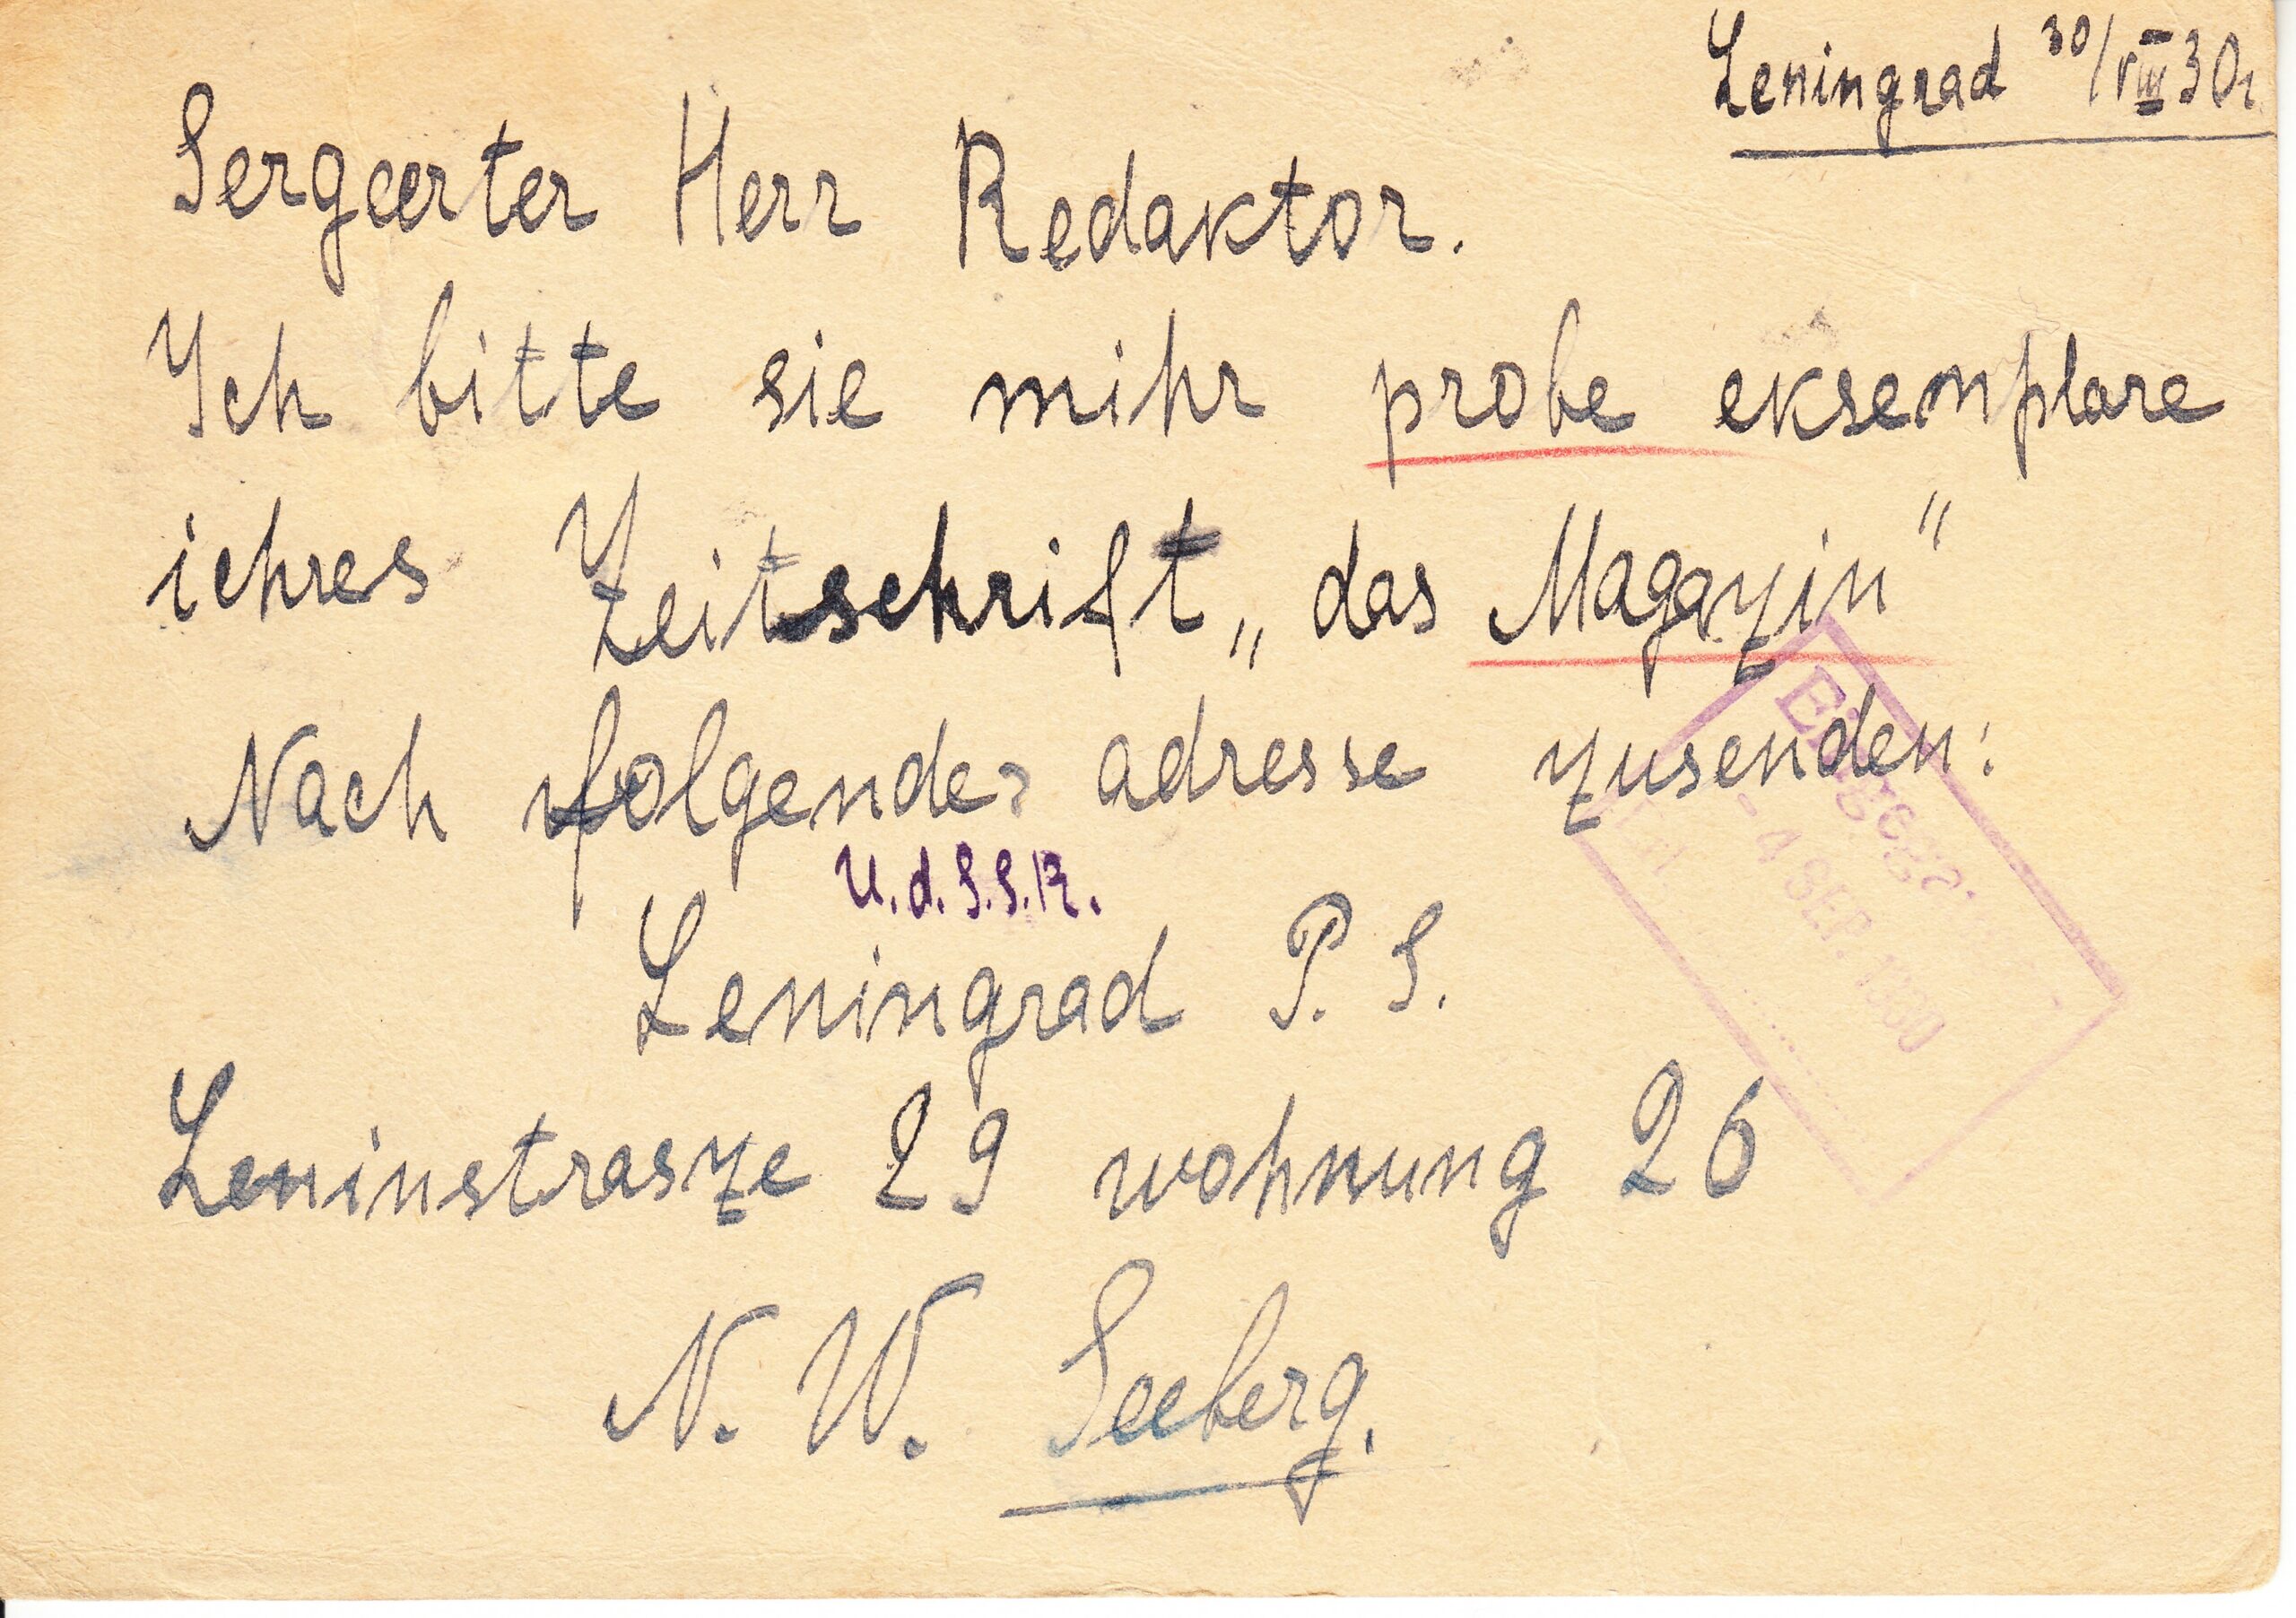 Leningrad 30/VIII 30г
Sergeerter Herr Redaktor.
Ich bitte sie mihr probe eksemplare
ichres Zeitschrift „das Magazin"
Nach folgender adresse zusenden:
U.d.S.S.R.
Leningrad P. S.
Leninstrasze 29 wohnung 26
N. W. Seeberg.
Eingeg.
- 4 SEP. 1930